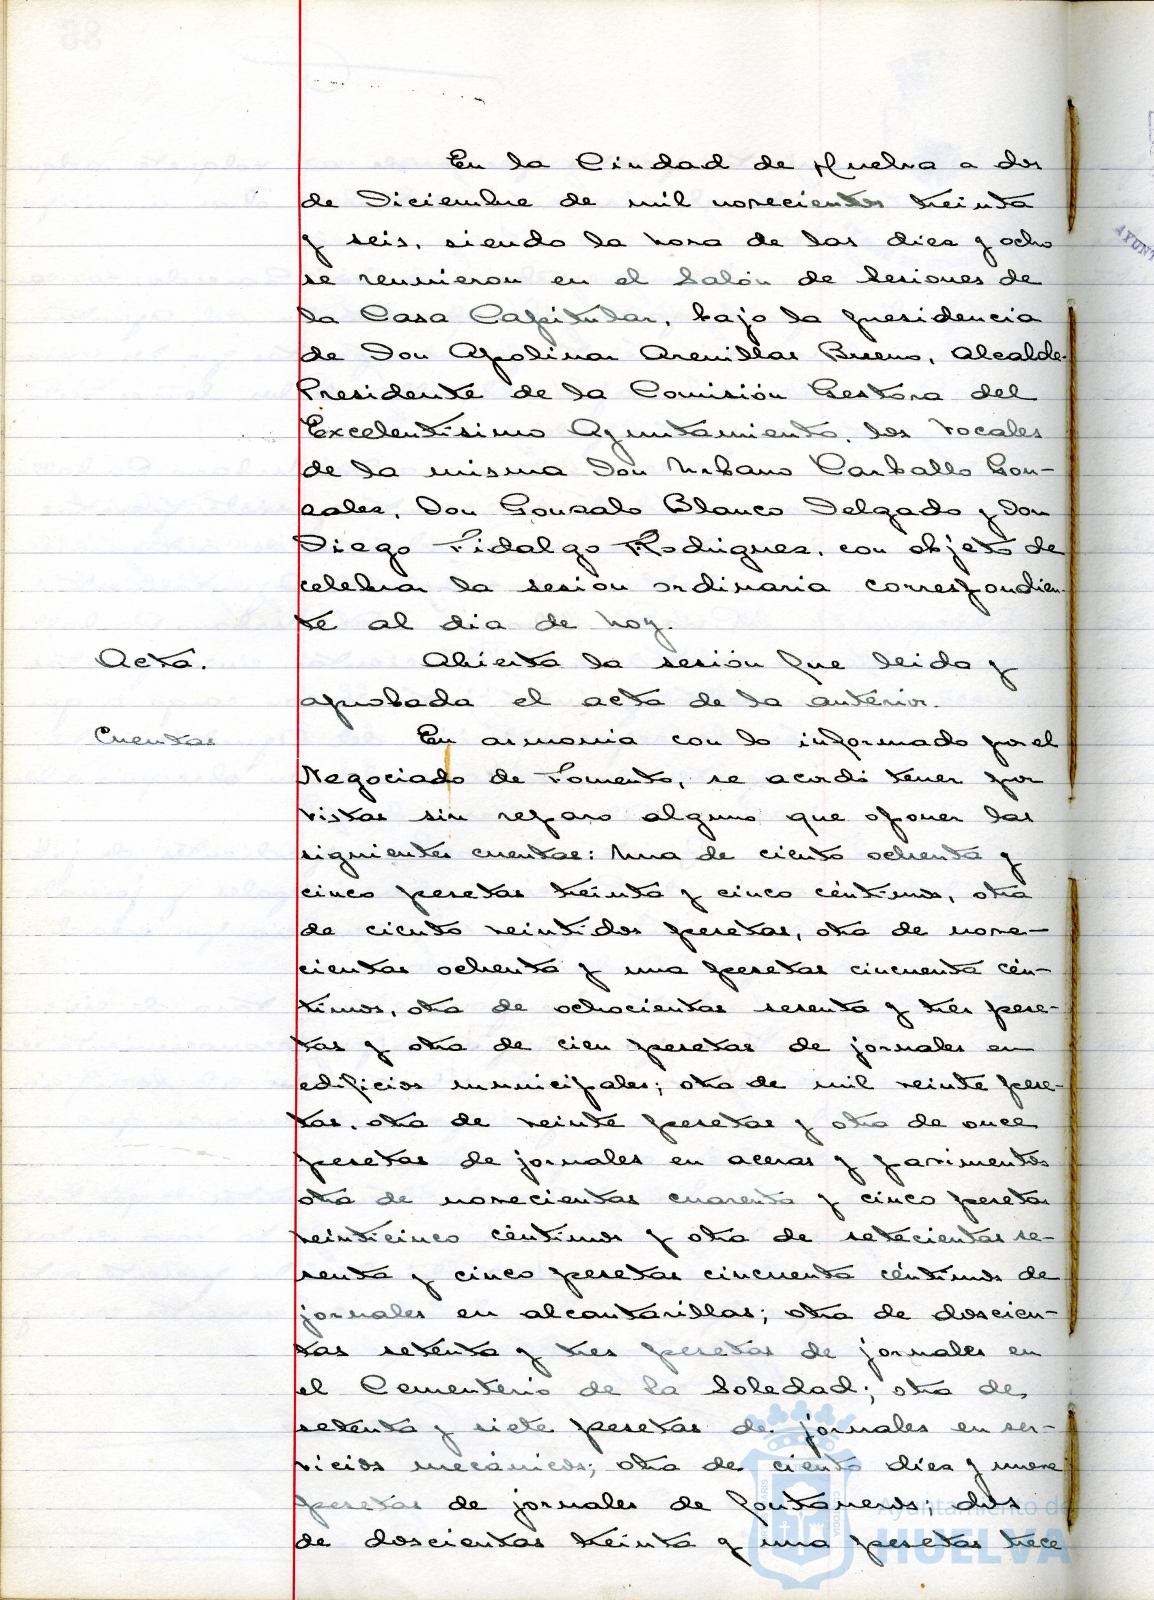 En la Ciudad de Huelva a dos
de Diciembre de mil novecientos treinta
y seis, siendo la hora de las diez y ocho
se reunieron en el Salón de Sesiones de
la Casa Capitular, bajo la presidencia
de Don Apolinar Arenillas Bueno, Alcalde-
Presidente de la Comisión Gestora del
Excelentísimo Ayuntamiento, los Vocales
de la misma Don Urbano Carballo Gon-
zales, Don Gonzalo Blanco Delgado y Don
Diego Fidalgo Rodriguez, con objeto de
celebrar la sesion ordinaria correspondien-
te al dia de hoy.
Acta.
Abierta la sesión fue leida y
aprobada el acta de la anterior.
Cuentas
En armonia con lo informado por el
Negociado de Fomento, se acordó tener por
vistas sin reparo alguno que oponer las
siguientes cuentas: Una de ciento ochenta y
cinco pesetas treinta y cinco céntimos, otra
de ciento veintidos pesetas, otra de nove-
cientas ochenta y una pesetas cincuenta cén-
timos, otra de ochocientas sesenta y tres pese-
tas y otra de cien pesetas de jornales en
edificios municipales; otra de mil veinte pese-
tas, otra de veinte pesetas y otra de once
pesetas de jornales en aceras y pavimentos
otra de novecientas cuarenta y cinco pesetas
veinticinco céntimos y otra de setecientas se-
senta y cinco pesetas cincuenta céntimos de
jornales en alcantarillas; otra de doscien-
tas setenta y tres pesetas de jornales en
el Cementerio de la Soledad; otra de
setenta y siete pesetas de jornales en ser-
vicios mecánicos; otra de ciento diez y nueve
pesetas de jornales de fontaneros; dos
de doscientas treinta y una pesetas trece
Ayuntamiento de
HUELVA